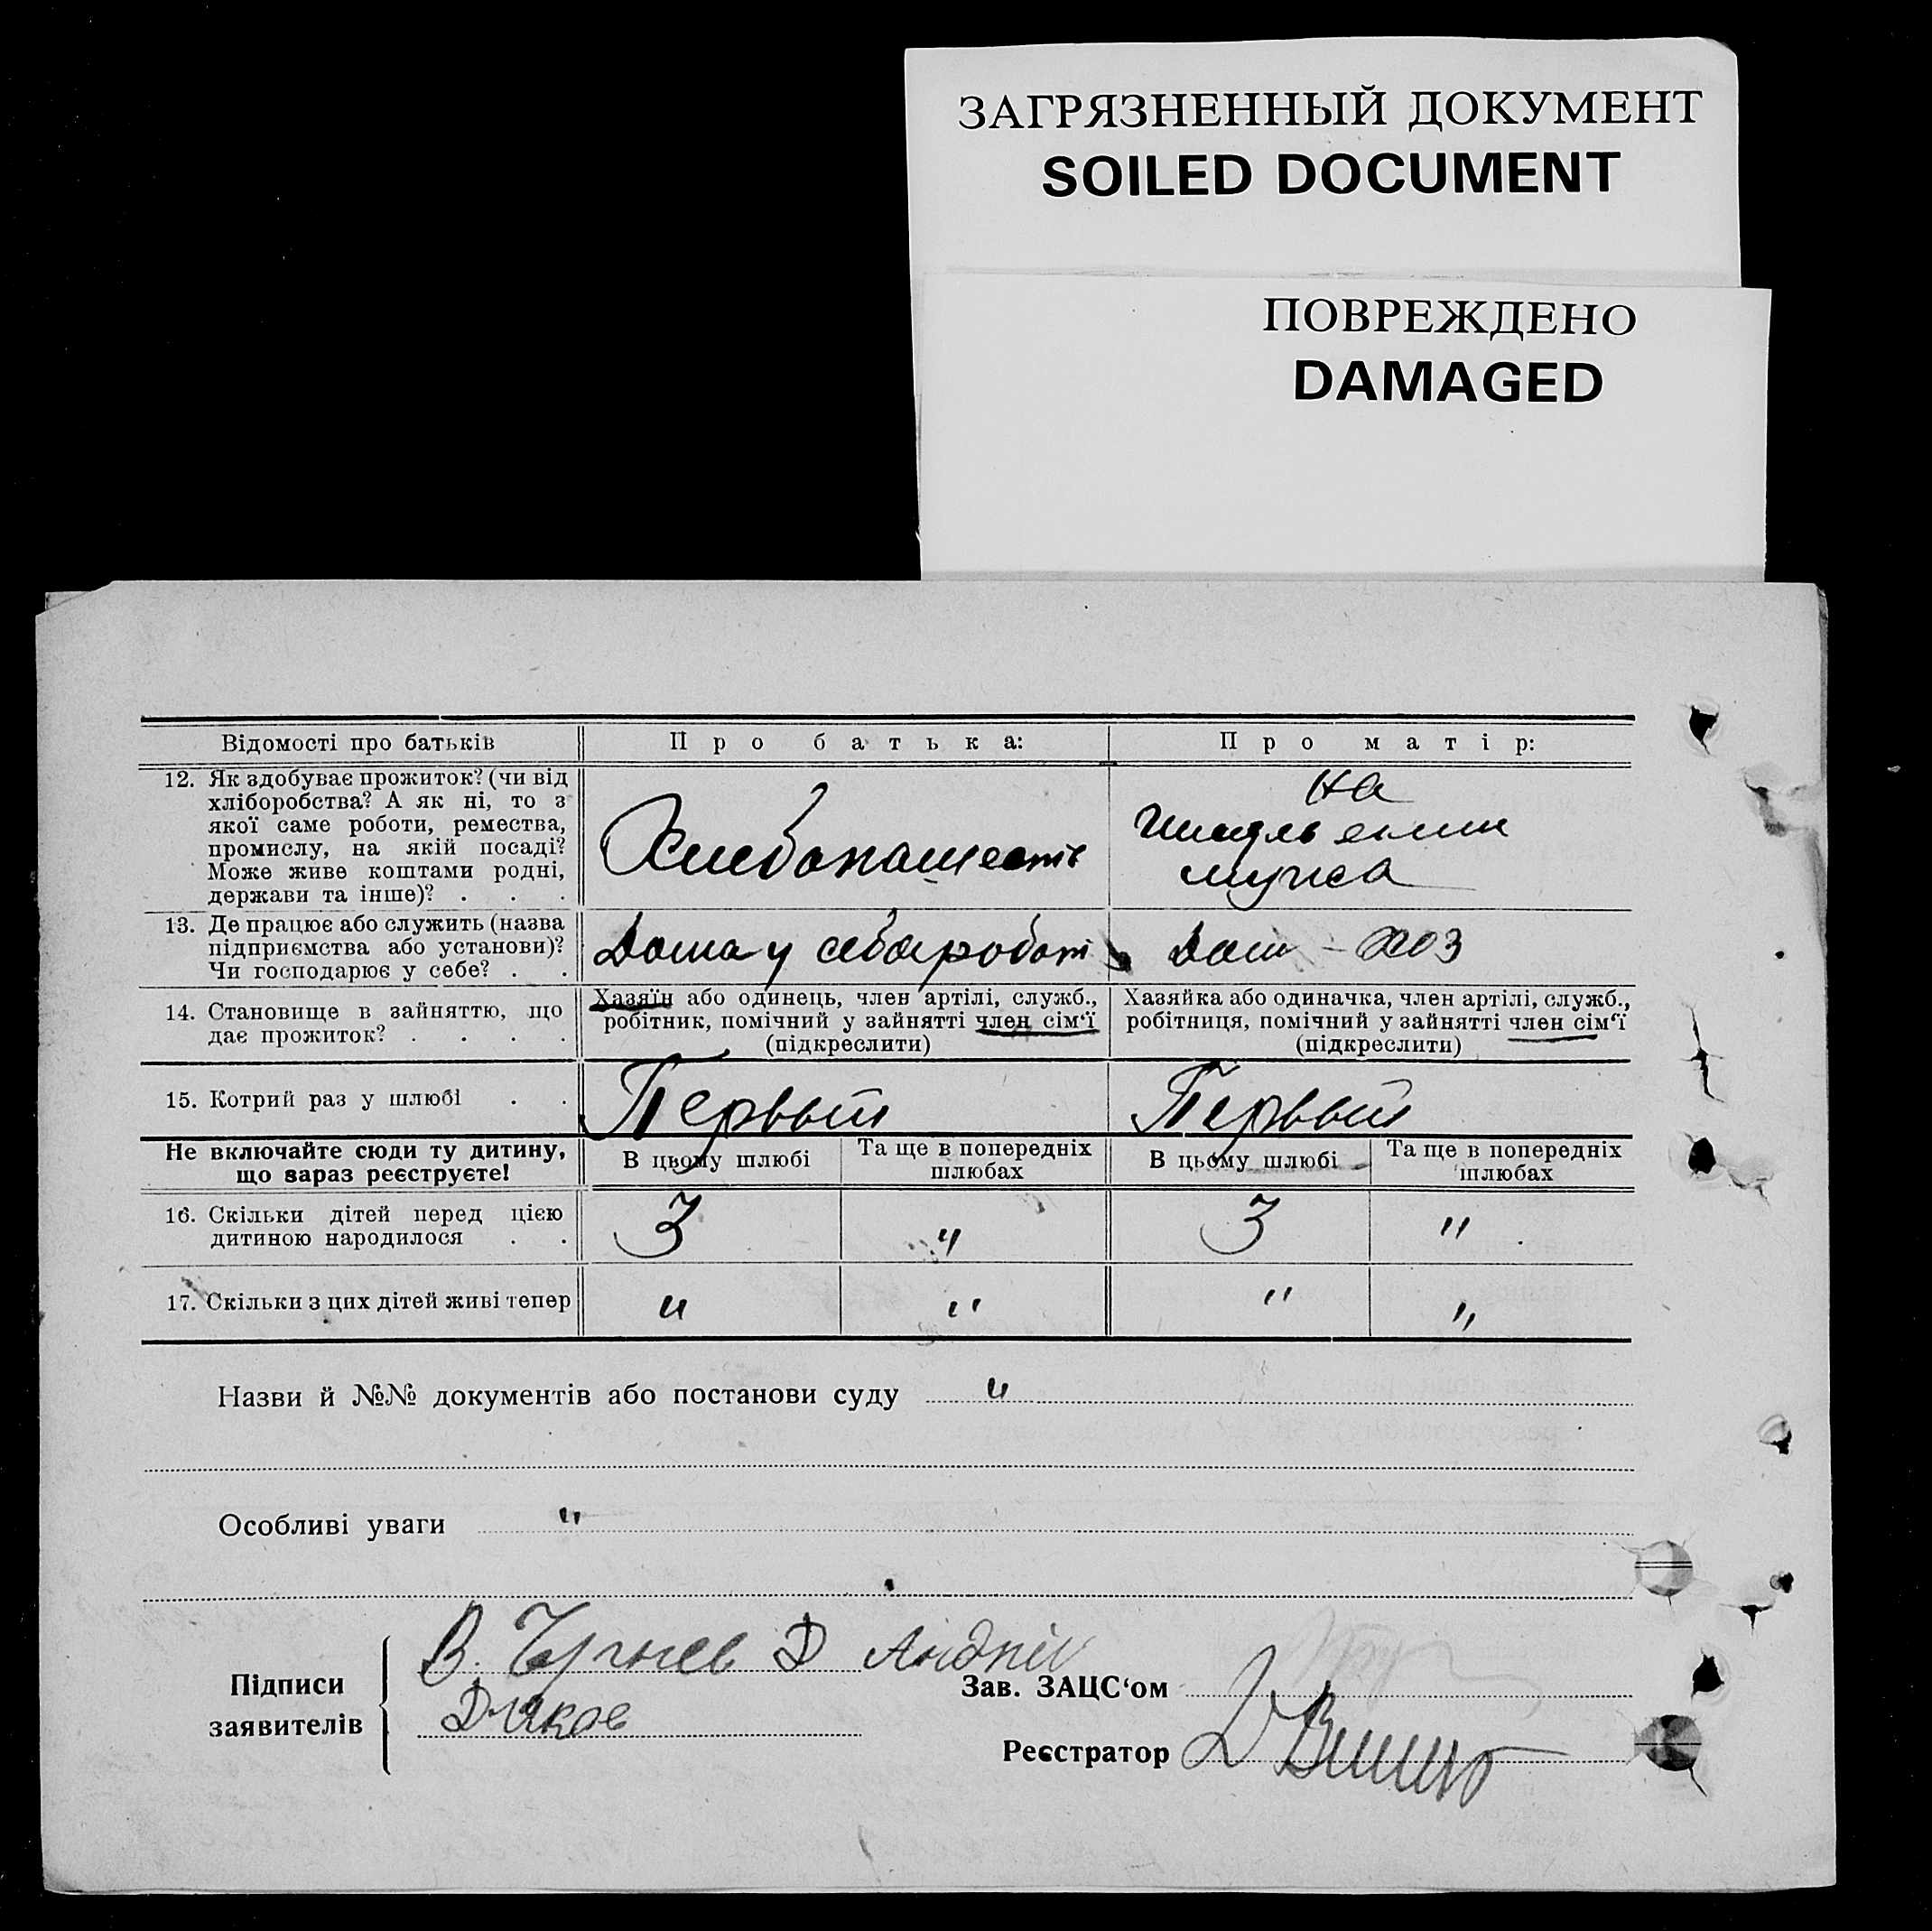 ЗАГРЯЗНЕННЫЙ ДОКУМЕНТ
SOILED DOCUMENT
ПОВРЕЖДЕНО
DAMAGED
Відомості про батьків
Про батька:
Про матір:
12. Як здобуває прожиток? (чи від
хліборобства? А як ні, то з
якої саме роботи, ремества,
промислу, на якій посаді?
Може живе коштами родні,
держави та інше)? . . .
на
мужа
13. Де працює або служить (назва
підприємства або установи)?
Чи господарює у себе? . .
Дома у себя
Дом - хоз
14. Становище в зайняттю, що
дає прожиток? . . . .
Хазяїн або одинець, член артілі, служб.,
робітник, помічний у зайнятті член сім'ї
(підкреслити)
Хазяйка або одиначка, член артілі, служб.,
робітниця, помічний у зайнятті член сім'ї
(підкреслити)
15. Котрий раз у шлюбі . .
Первый
Первый
Не включайте сюди ту дитину,
що зараз реєструєте!
В цьому шлюбі
Та ще в попередніх
шлюбах
В цьому шлюбі
Та ще в попередніх
шлюбах
16. Скільки дітей перед цією
дитиною народилося . .
3
"
3
"
17. Скільки з цих дітей живі тепер
"
"
"
"
Назви й №№ документів або постанови суду "
Особливі уваги "
Підписи
заявителів
В.
Д
Зав. ЗАЦС'ом
Реєстратор